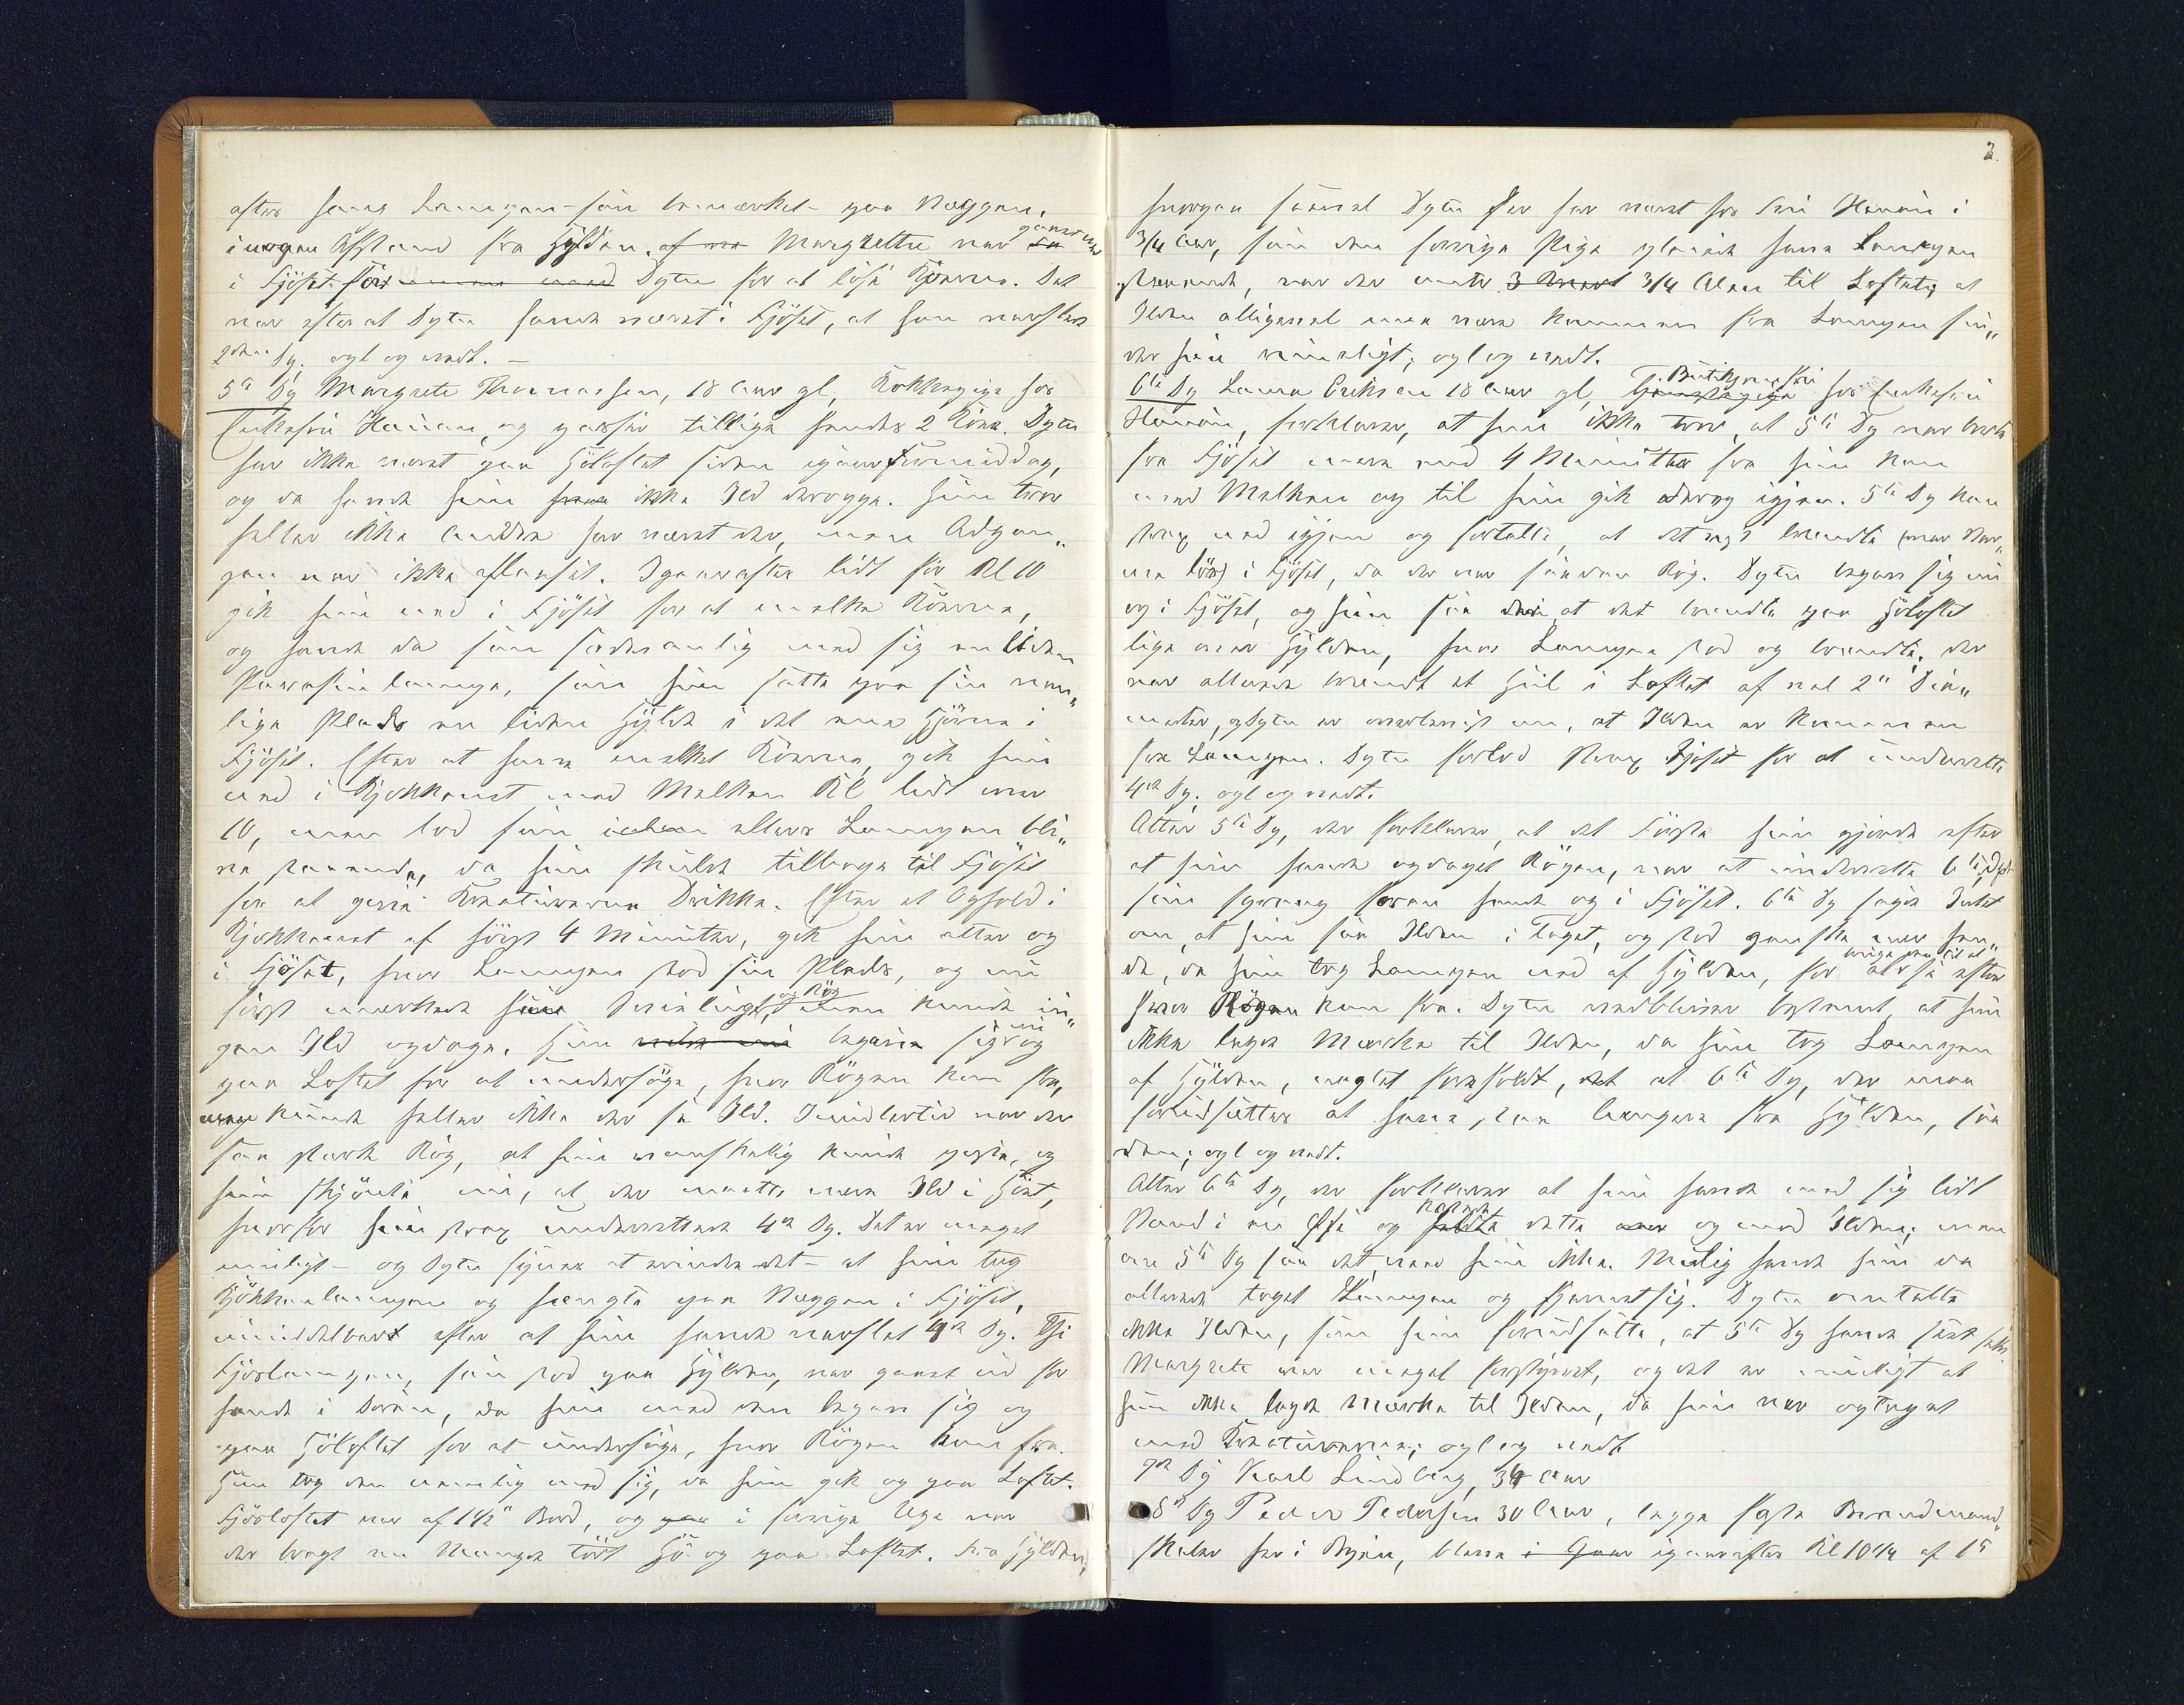 efter hang Lampen – som bemærket paa Væggen,
i nogen Afstand fra Hylden. af na Margrethe var ganske nær
i Fjöset for Dptn for at löse Kjörene. Det
var efter at Dptn havde været i Fjöset, at hun varslede
2den Dp. opl og vedt. –
5te Dp Margrete Thomassen, 18 Aar gl, Kokkepige hos
Enkefru Hanien, og passer tilliga hendes 2 Kör. Dptn
har ikke været paa Höloftet siden igaarformiddag,
og da havde hun ikke Ild deroppe. Hun tror
heller ikke Andre har været der, men Adgan„
gen var ikke aflaaset. Igaaraftes lidt før Kl 10
gik hun ned i Fjöset for at malke Körene,
og havde da som sædvanlig med sig en liden
Parafinlampe, som hun satte paa sin van„
lige Plads en liden Hylde i det ene Hjörne i
Fjöset. Efter at have malket Körene, gik hun
ned i Kjøkkenet med Melken Kl lidt over
10, men lod sin ellers Lampen bli„
ve staaende, da hun skulde tilbage til Fjöset
for at give Kreaturerne Drikke. Efter et Ophold i
Kjøkkenet af höist 4 Minuter, gik hun atter op
i Fjöset, hvor Lampen stod sin Plads, og nu
først mærkede hun Svielugt, og Røg men kunde in„
gen Ild opdage. Hun begav sig nu op
paa Loftet for at undersöge, hvor Rögen kom fra,
men kunde heller ikke der se Ild. Imidlertid var der
saa stærk Rög, at hun vanskelig kunde puste, og
hun skjönte nu, at der maatte være Ild i Höet,
hvorfor hun strax underrettede 4de Dp. Det er meget
muligt – og Dptn synes at erindre det – at hun tog
Kjökkenlampen og hængte paa Væggen i Fjöset,
umiddelbart efter at hun havde varslet 4de Dp. Thi
Fjöslampen, som stod paa Hylden, var gaaet ud for
hende i Dören, da hun med den begav sig op
paa Höloftet for at undersöge, hvor Rögen kom fra.
Hun tog den nemlig med sig, da hun gik op paa Loftet.
Fjösloftet var af 1½" Bord, og i forrige Uge var
der bragt en Mængde tört Hö op paa Loftet. Fra Hylden,
2.
hvorpaa saavel Dptn der har været hos Fru Hanien i
3/4 Aar, som den forrige Pige pleiede have Lampen
staaende, var der mindst 3/4 Alen til Loftet; at
Ilden alligevel maa være kommen fra Lampen fin„
der hun rimeligt; opl og vedt.
6te Dp Laura Eriksen 18 Aar gl, Butikjomfru hos Enkefru
Hanien, forklarer, at hun ikke tror, at 5te Dp var borte
fra Fjöset mere end 4 Minutter fra hun kom
ned Melken og til hun gik derop igjen. 5te Dp kom
strax ned igjen og fortalte, at det vist brændte (var Var„
me lös) i Fjöset, da der var saadan Røg. Dptn begav sig nu
op i Fjöset, og hun saa da at det brændte paa Höloftet
lige over Hylden, hvor Lampen stod og brændte, der
var allerede brændt et Hul i Loftet af vel 2" Dia„
meter, og Dptn er overbevist om, at Ilden er kommen
fra Lampen. Dptn forlod strax Fjøset for at underrette
4de Dp; opl og vedt.
Atter 5te Dp, der forklarer, at det Første hun gjorde efter
at hun havde opdaget Rögen, var at underrette 6te Dp
hun sprang foran hende op i Fjöset. 6te Dp sagde Intet
om, at hun saa Ilden i Taget, og stod ganske nær hen„
de, da hun tog Lampen ned af Hylden, for at se efter
hvor Rögen kom fra. Dptn vedbliver bestemt at hun
ikke lagde Mærke til Ilden, da hun tog Lampen
af Hylden, noget foreholdt, at 6te Dp, der maa
forudsættes at have staa længere fra Hylden, saa
den; opl og vedt.
Atter 6te Dp, der forklarer at hun havde med sig lidt
Vand i en Öse og kastede dette op mod Ilden; men
om 5te Dp saa det, ved hun ikke. Mulig havde hun da
allerede taget Lampen og fjernet sig. Dptn omtalte
ikke Ilden, som hun forudsatte, at 5te Dp havde seet selv.
Margrete var meget forstyrret, og det er muligt at
hun ikke lagde Mærke til Ilden, da hun var optaget
med Kreaturerne; opl og vedt
7de Dp Karl Lindberg, 34 Aar
8de Dp Peder Pedersen 30 Aar, begge faste Brandmand„
skaber her i Byen, bleve igaaraftes Kl 10¼ af 1te